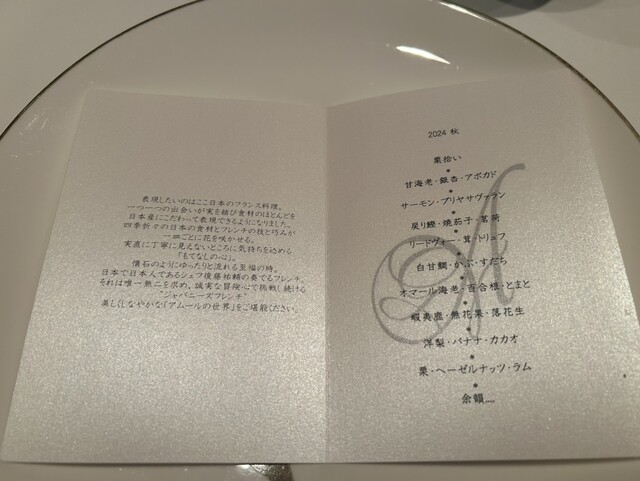 表現したいのはここ日本のフランス料理。
一つ一つの出会いが実を結び食材のほとんどを
日本産にこだわって表現できるようになりました。
四季折々の日本の食材とフレンチの技と巧みが
一皿ごとに花を咲かせる。
実直に丁寧に見えないところに気持ちを込める
「もてなしの心」。
懐石のようにゆったりと流れる至福の時。
日本で日本人であるシェフ後藤祐輔の奏でるフレンチ。
それは唯一無二を求め、誠実な冒険心で挑戦し続ける
"ジャパニーズフレンチ"
美しくしなやかな「アムールの世界」をご堪能ください。
2024 秋
栗拾い
甘海老・銀杏・アボカド
サーモン・ブリヤサヴァラン
戻り鰹・焼茄子・茗荷
リードヴォー・茸・トリュフ
白甘鯛・かぶ・すだち
オマール海老・百合根・とまと
蝦夷鹿・無花果・落花生
洋梨・バナナ・カカオ
栗・ヘーゼルナッツ・ラム
余韻....